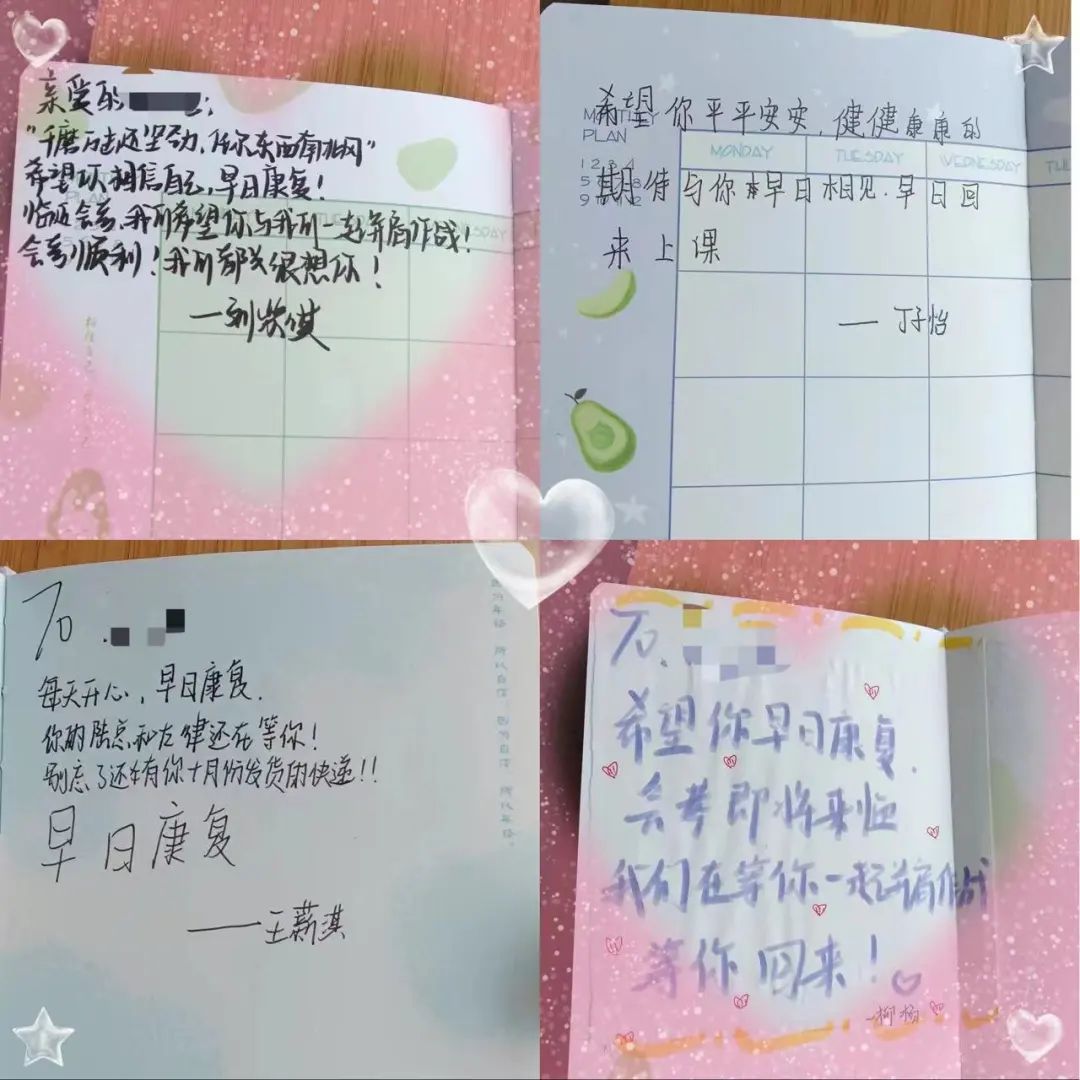 亲爱的
"千磨万击还坚劲，任尔东西南北风"
希望 相信自己，早日康复！
临近会考，我们希望你与我们一起并肩作战！
会考顺利！我们都很想你！
MONTHLY
PLAN
MONDAY
TUESDAY
WEDNESDAY
希望你平平安安，健健康康的
期待与你早日相见.早日回
来上课
——丁子怡
To.
每天开心，早日康复.
你的陆总和左律还在等你！
别忘了还有你十月份发货的快递！！
早日康复
——王薪淇
To.
希望你早日康复.
会考即将来临
我们在等你一起并肩作战
等你回来！
-柳杨